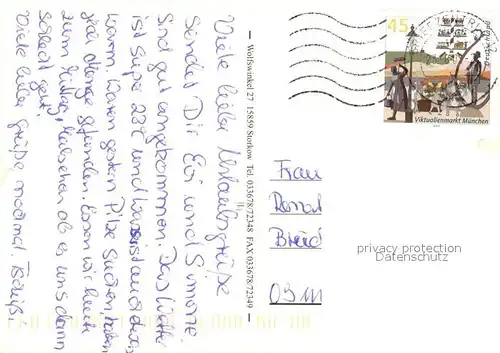 Viele liebe Urlaubsgrüße
Sendet Dir Evi und Simone.
Sind gut angekommen. Das Wetter
ist super 22°C und Wasser ist auch
warm. Waren gestern Pilze suchen, haben
jede Menge gefunden. Essen wir heute
zum Mittag, mal sehen ob es uns dann
schlecht geht!
Viele liebe Grüße nochmal. Tschüß.
— Wolfswinkel 27 15859 Storkow Tel. 033678/72348 FAX 033678/72349 —
45
Deutschland
Viktualienmarkt München
Frau
privacy protection
Datenschutz